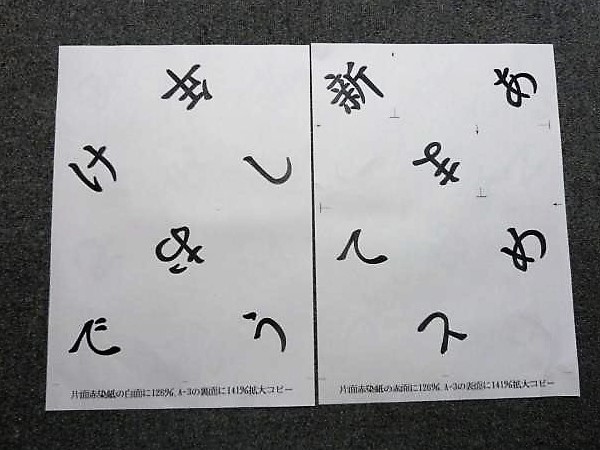 年
け し
お
で う
片面赤染紙の白面に126%、A-3の裏面に141%拡大コピー
新 あ
ま
て め
と
片面赤染紙の赤面に126%、A-3の表面に141%拡大コピー